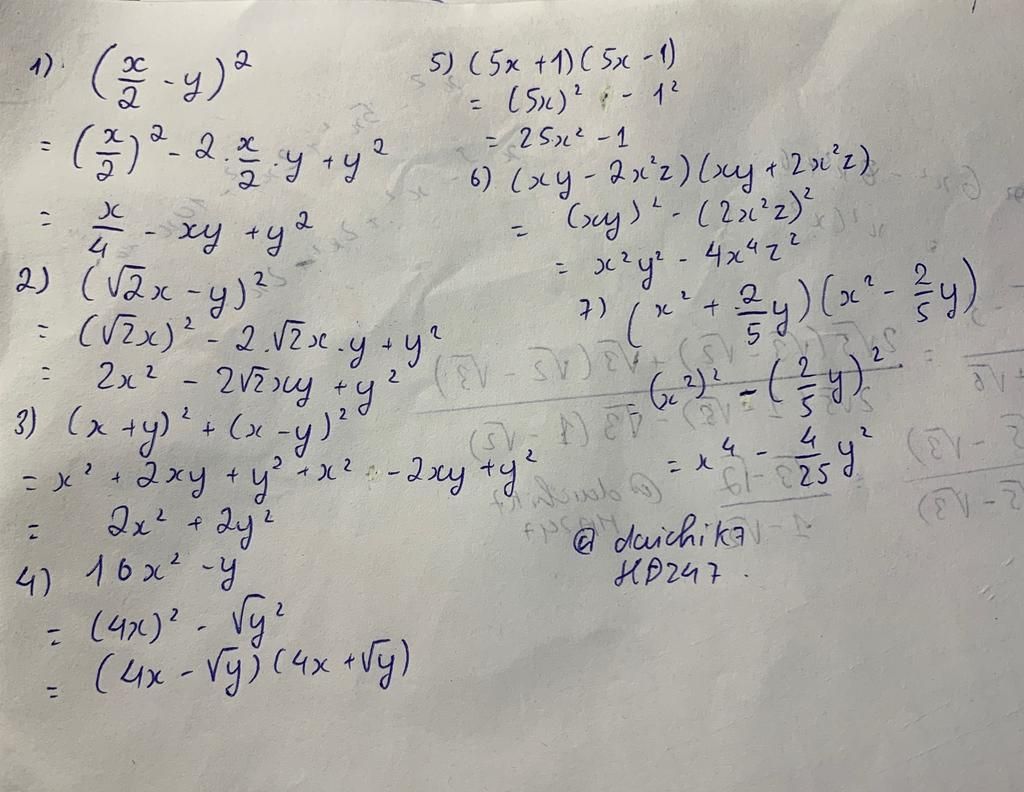 1) (x/2 - y)²
= (x/2)² - 2 . x/2 . y + y²
= x/4 - xy + y²
2) (√2x - y)²
= (√2x)² - 2.√2x.y + y²
= 2x² - 2√2xy + y²
3) (x + y)² + (x - y)²
= x² + 2xy + y² + x² - 2xy + y²
= 2x² + 2y²
4) 16x² - y
= (4x)² - √y²
= (4x - √y)(4x + √y)
5) (5x + 1)(5x - 1)
= (5x)² - 1²
= 25x² - 1
6) (xy - 2x²z)(xy + 2x²z)
= (xy)² - (2x²z)²
= x²y² - 4x⁴z²
7) (x² + 2/5y)(x² - 2/5y)
= (x²)² - (2/5y)²
= x⁴ - 4/25y²
@daichik7
HD247.